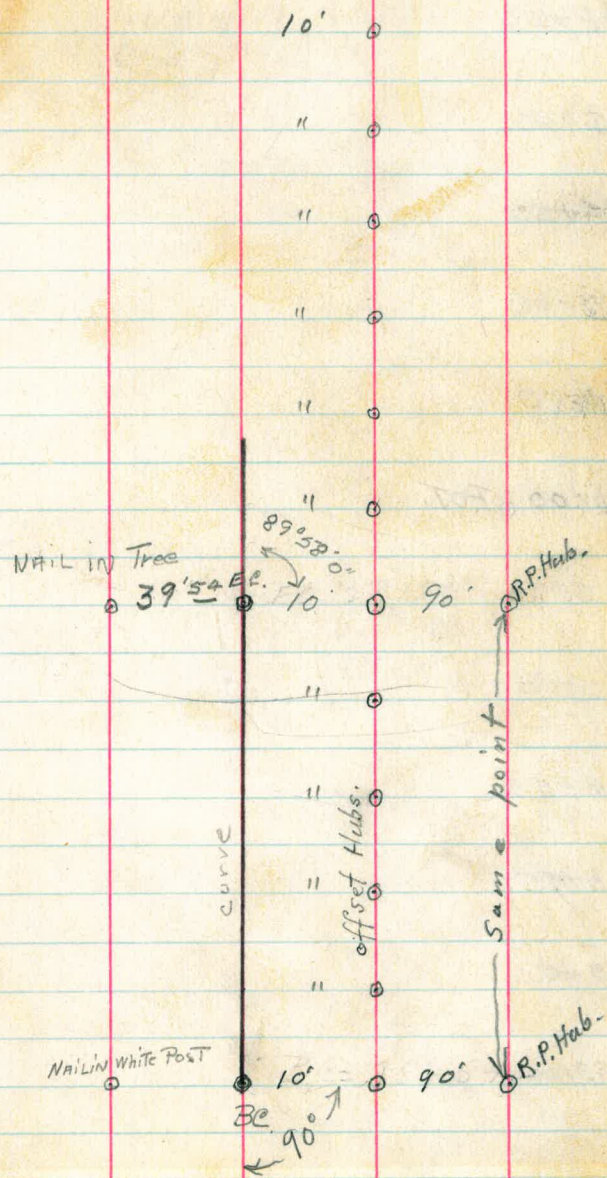 10'
"
"
"
"
"
89°58'0"
NAIL IN Tree
39'54 E.C. 10 90' R.P. Hub.
"
"
"
"
curve
offset Hubs.
Same point
NAIL IN White Post
10' 90' R.P. Hub.
BC
90°